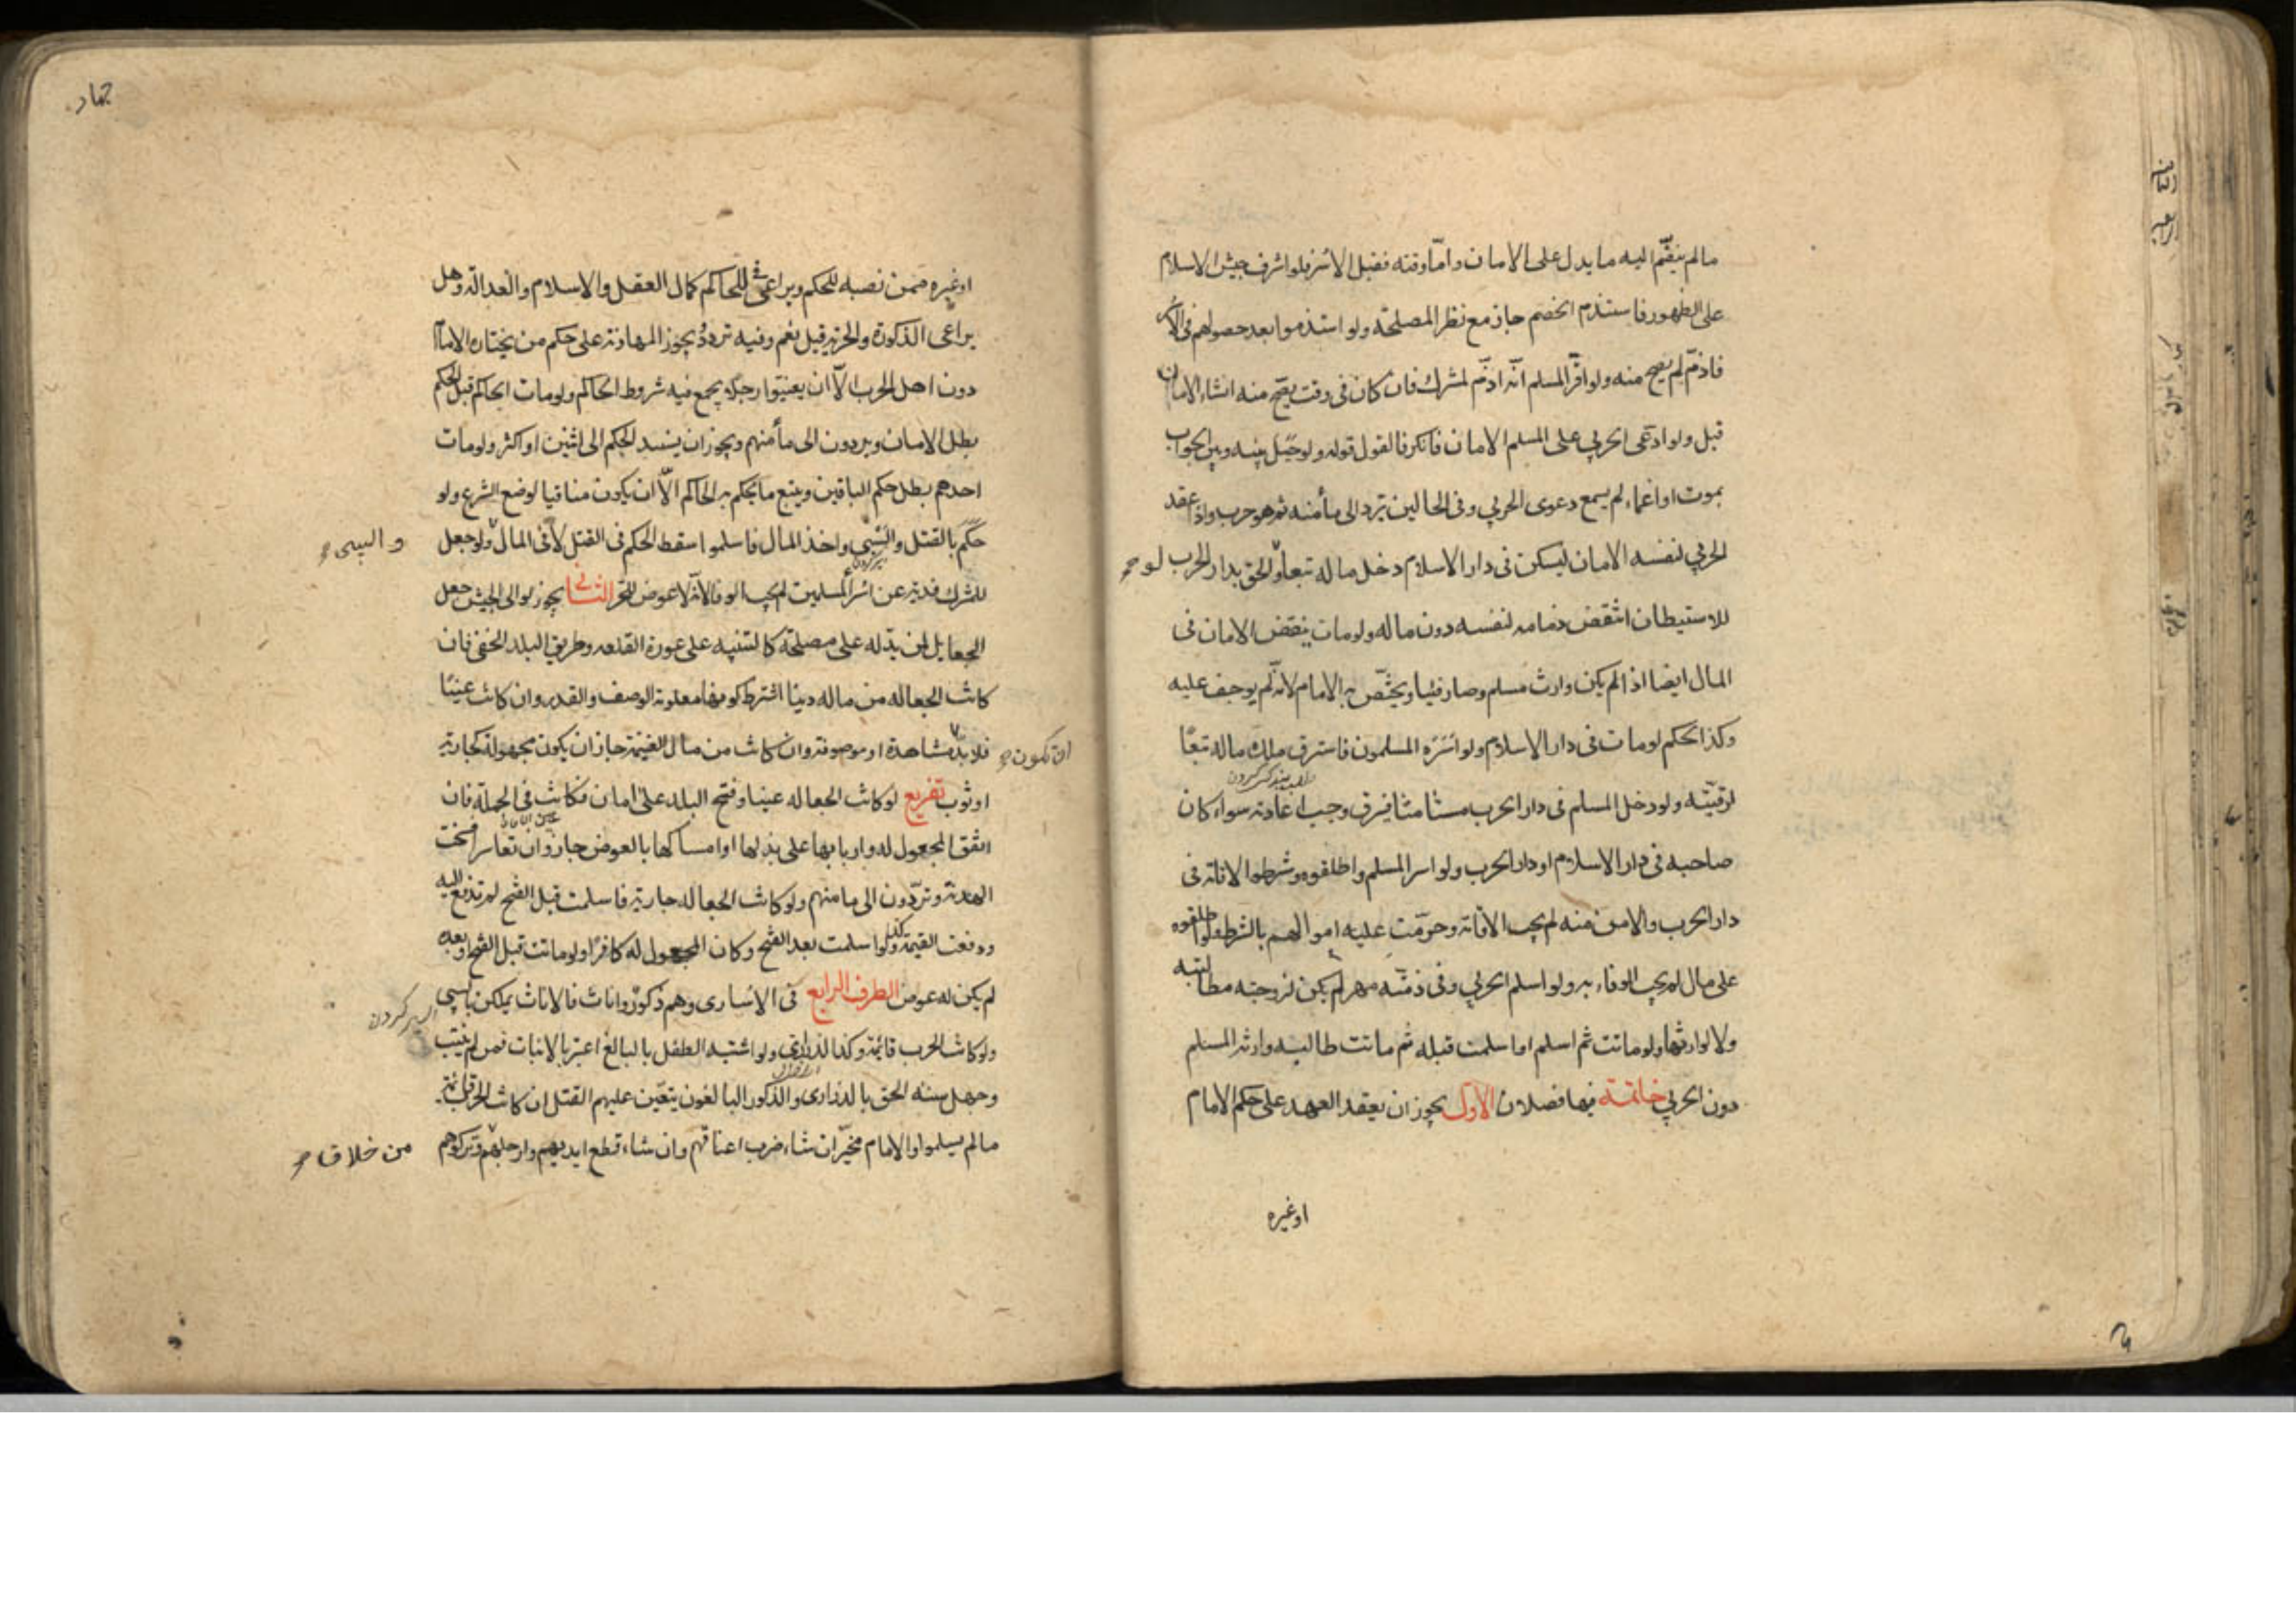 مالم ينضم اليه ما يدل على الامان واما وقته فقبل الاسر فلو اشرف جيش الاسلام
على الظهور فاستذم الخصم جاز مع نظر المصلحة ولو استذموا بعد حصولهم فى الاسر
فاذم لم يصح منه ولو اقر المسلم انه اذم لمشرك فان كان فى وقت يصح منه انشاء الامان
قبل ولو ادعى الحربي على المسلم الامان فانكر فالقول قوله ولو حيل بينه وبين الجواب
بموت او اغماء لم يسمع دعوى الحربي وفى الحالين يرد الى مأمنه ثم هو حرب واذا عقد
الحربي لنفسه الامان ليسكن فى دار الاسلام دخل ماله تبعا ولو الحق بدار الحرب
للاستيطان انتقض ذمامه لنفسه دون ماله ولو مات ينقض الامان فى
المال ايضا اذا لم يكن وارث مسلم وصار فيئا ويختص به الامام لانه لم يوجف عليه
وكذا الحكم لو مات فى دار الاسلام ولو اسره المسلمون فاسترق ملك ماله تبعا
لرقيته ولو دخل المسلم فى دار الحرب مستامنا فسرق وجب اعادته سواء كان
صاحبه فى دار الاسلام او دار الحرب ولو اسر المسلم واطلقوه وشرطوا الاقامة فى
دار الحرب والامن منه لم يجب الاقامة وحرمت عليه اموالهم بالشرط ولو اطلقوه
على مال لم يجب الوفاء به ولو اسلم الحربي وفى ذمته مهر لم يكن لزوجته مطالبته
ولا لوارثها ولو ماتت ثم اسلم او اسلمت قبله ثم ماتت طالبه وارثه المسلم
دون الحربي خاتمة فيها فصلان الاول يجوز ان يعقد العهد على حكم الامام
او غيره
جهاد
او غيره ممن نصبه للحكم ويراعى فى الحاكم كمال العقل والاسلام والعدالة وهل
يراعى الذكورة والحرية قيل نعم وفيه تردد يجوز المهادنة على حكم من يختاره الامام
دون اهل الحرب الا ان يعينوا رجلا يجمع فيه شروط الحاكم ولو مات الحاكم قبل الحكم
بطل الامان ويردون الى مأمنهم ويجوز ان يسند الحكم الى اثنين او اكثر ولو مات
احدهم بطل حكم الباقين ويتبع ما يحكم به الحاكم الا ان يكون منافيا لوضع الشرع ولو
حكم بالقتل والسبي واخذ المال فاسلموا سقط الحكم فى القتل لا فى المال ولو جعل
والسبى
للمشرك فدية عن اسراء المسلمين لم يجب الوفاء لانه لا عوض للحر الثانى يجوز لوالى الجيش جعل
الجعايل لمن يدله على مصلحة كالتنبيه على عورة القلعه وطريق البلد الخفى فان
كانت الجعاله من ماله دينا اشترط كونها معلومة الوصف والقدر وان كانت عينا
فلا بد مشاهدة او موصوفة وان كانت من مال الغنيمة جاز ان يكون مجهولة كجارية
ان تكون
او ثوب تفريع لو كانت الجعاله عينا وفتح البلد على امان فكانت فى الجملة فان
اتفق المجعول له واربابها على بذلها او امساكها بالعوض جاز وان تعاسرا فسخت
الهدنة وتردون الى مامنهم ولو كانت الجعاله جارية فاسلمت قبل الفتح لم تدفع اليه
ودفعت القيمة وكذا لو اسلمت بعد الفتح وكان المجعول له كافرا ولو ماتت قبل الفتح او بعده
لم يكن له عوض الطرف الرابع فى الاسارى وهم ذكور واناث فالاناث يملكن بالسبي
اسير كردن
ولو كانت الحرب قائمة وكذا الذرارى ولو اشتبه الطفل بالبالغ اعتبر بالانبات فمن لم ينبت
وجهل سنه الحق بالذرارى والذكور البالغون يتعين عليهم القتل ان كانت الحرب قائمة
مالم يسلموا والامام مخير ان شاء ضرب اعناقهم وان شاء قطع ايديهم وارجلهم وتركهم
من خلاف